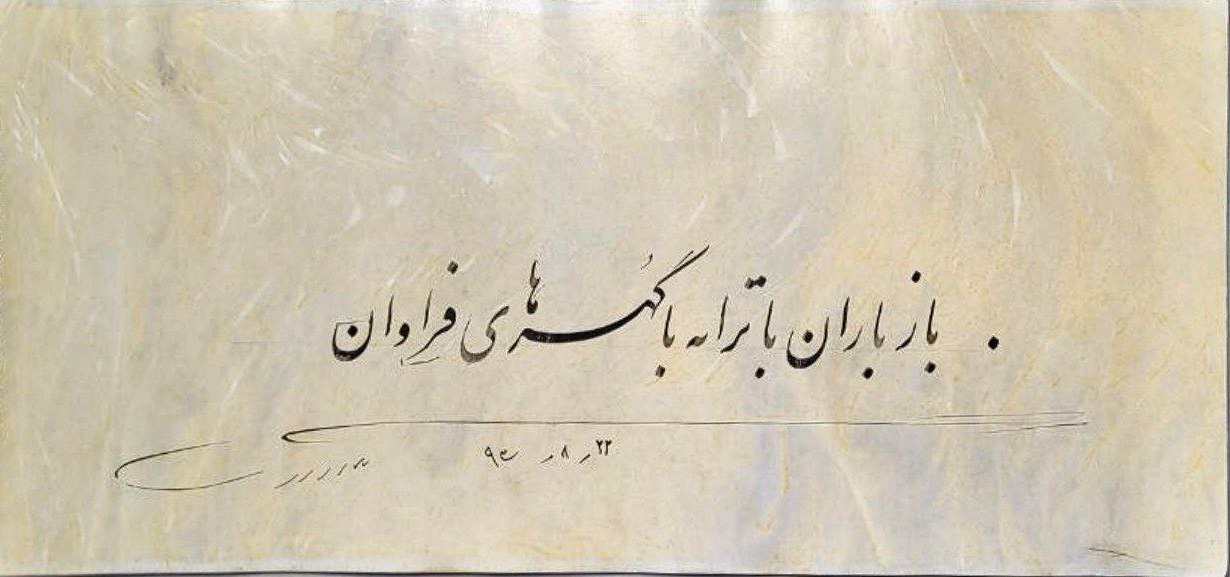 باز باران با ترانه با گُهرهای فراوان
۲۲ر ۸ر ۹۳